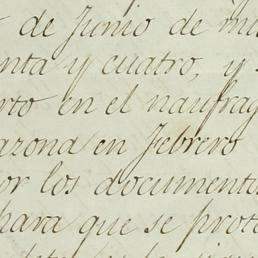 de Junio de mi
nta y cuatro, y
rto en el naufrag
azona en Febrero
or los documento
para que se prote